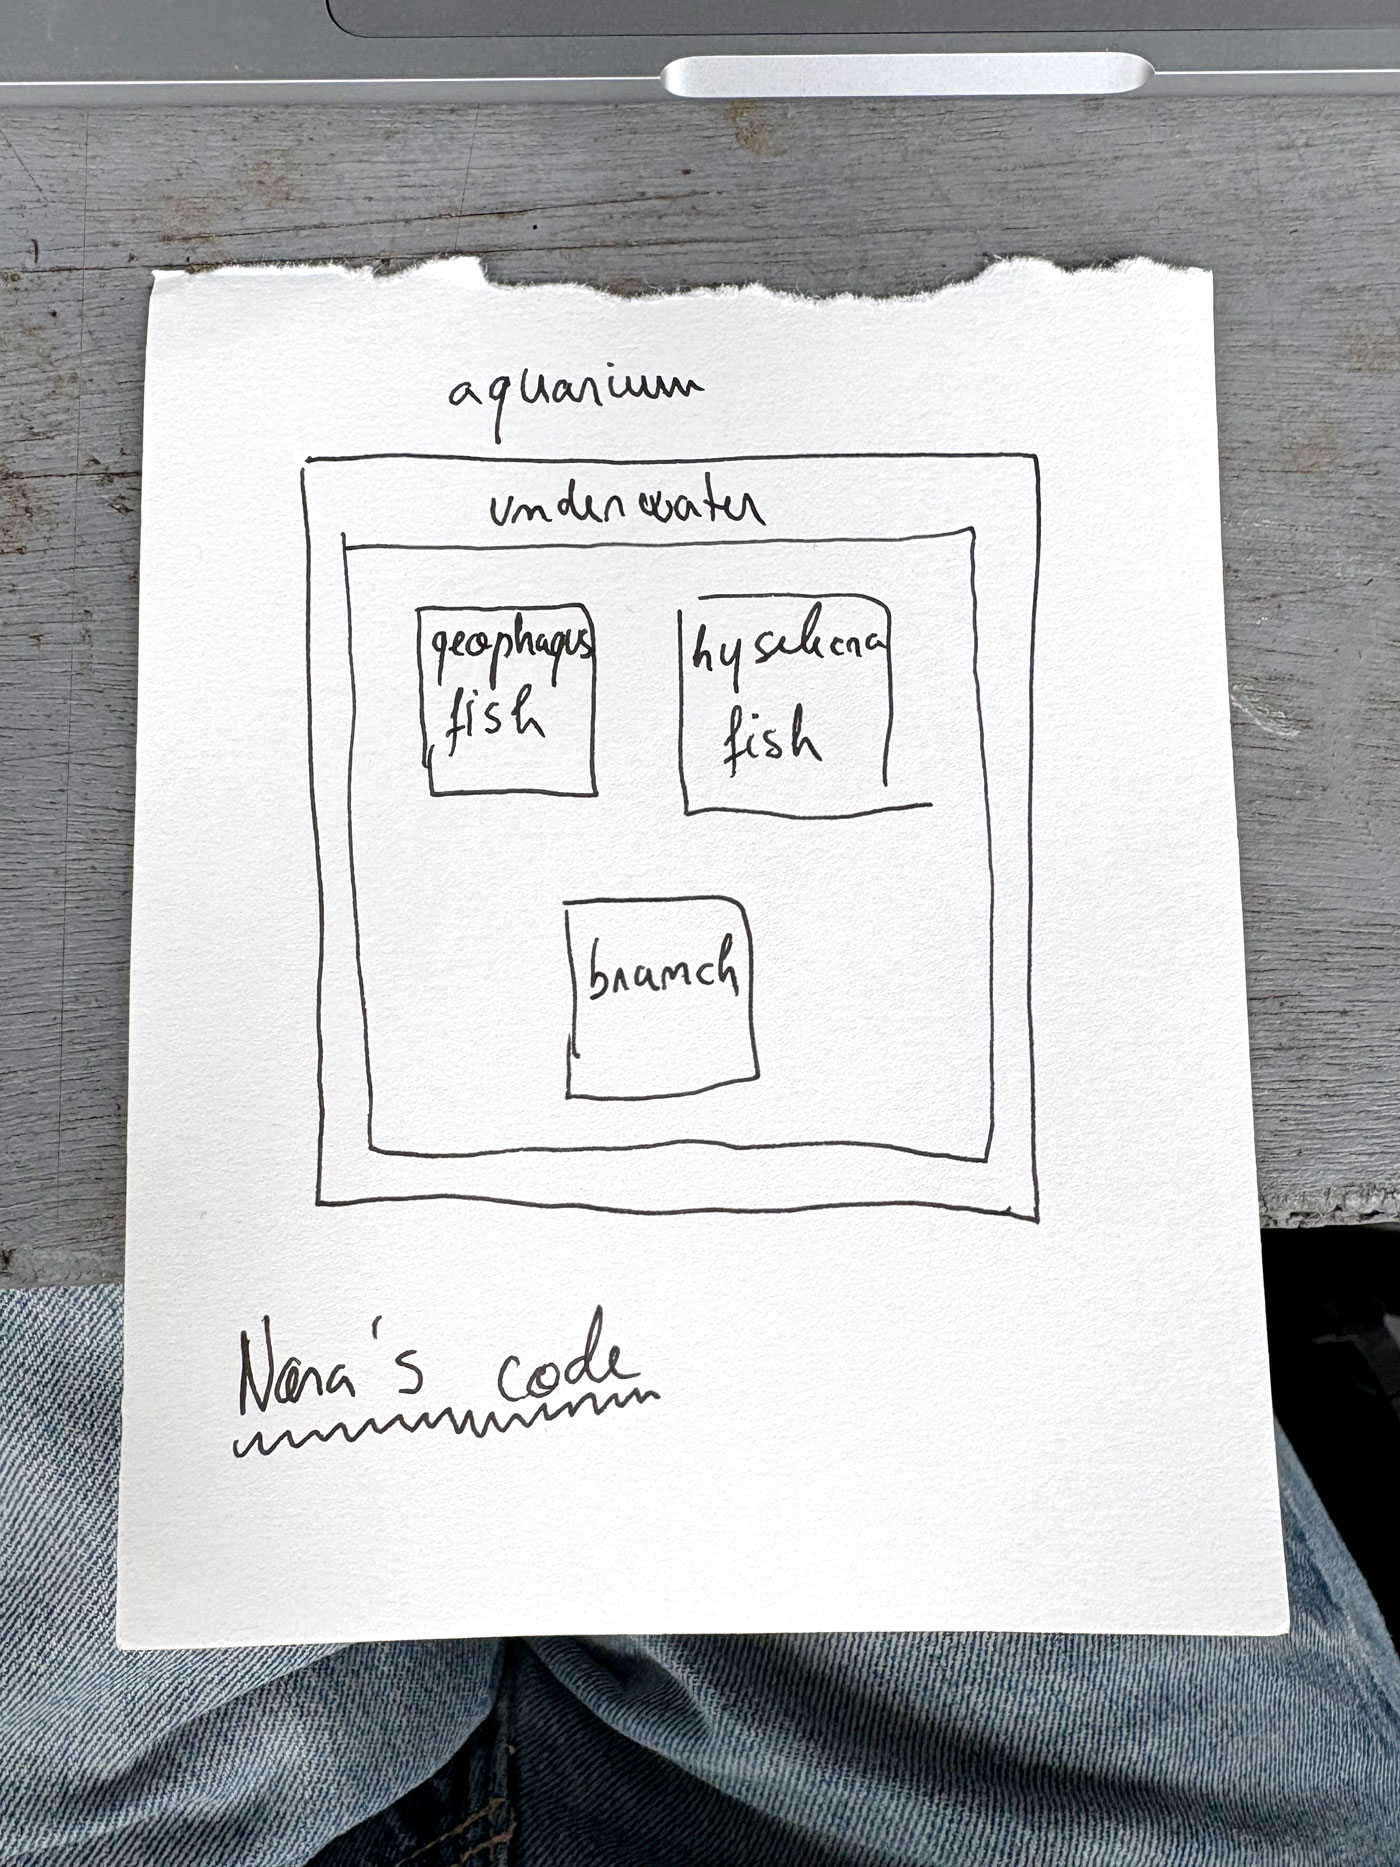 aquarium
underwater
geophagus
fish
fish
branch
Nara's code